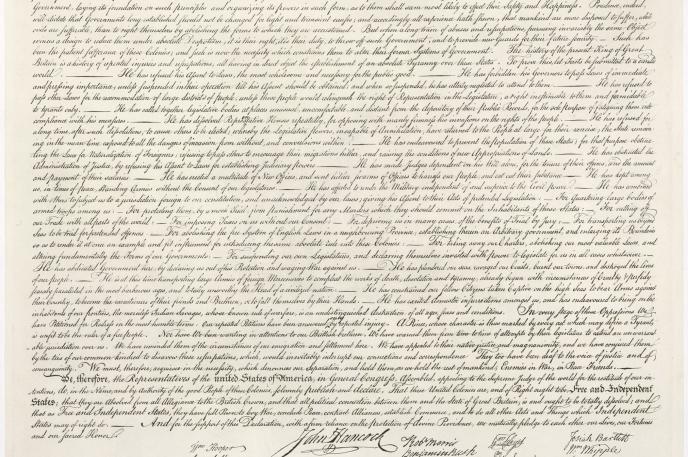 Government, laying its foundation on such principles and organizing its powers in such form, as to them shall seem most likely to effect their Safety and Happiness. Prudence, indeed,
will dictate that Governments long established should not be changed for light and transient causes; and accordingly all experience hath shewn, that mankind are more disposed to suffer, while
evils are sufferable, than to right themselves by abolishing the forms to which they are accustomed. But when a long train of abuses and usurpations, pursuing invariably the same Object
evinces a design to reduce them under absolute Despotism, it is their right, it is their duty, to throw off such Government, and to provide new Guards for their future security. Such has
been the patient sufferance of these Colonies; and such is now the necessity which constrains them to alter their former Systems of Government. The history of the present King of Great
Britain is a history of repeated injuries and usurpations, all having in direct object the establishment of an absolute Tyranny over these States. To prove this, let Facts be submitted to a candid
world. He has refused his Assent to Laws, the most wholesome and necessary for the public good. He has forbidden his Governors to pass Laws of immediate
and pressing importance, unless suspended in their operation till his Assent should be obtained; and when so suspended, he has utterly neglected to attend to them. He has refused to
pass other Laws for the accommodation of large districts of people, unless those people would relinquish the right of Representation in the Legislature, a right inestimable to them and formidable
to tyrants only. He has called together legislative bodies at places unusual, uncomfortable, and distant from the depository of their public Records, for the sole purpose of fatiguing them into
compliance with his measures. He has dissolved Representative Houses repeatedly, for opposing with manly firmness his invasions on the rights of the people. He has refused for
a long time, after such dissolutions, to cause others to be elected; whereby the Legislative powers, incapable of Annihilation, have returned to the People at large for their exercise; the State remain-
ing in the mean time exposed to all the dangers of invasion from without, and convulsions within. He has endeavoured to prevent the population of these States; for that purpose obstruc-
ting the Laws for Naturalization of Foreigners; refusing to pass others to encourage their migrations hither, and raising the conditions of new Appropriations of Lands. He has obstructed the
Administration of Justice, by refusing his Assent to Laws for establishing Judiciary powers. He has made Judges dependent on his Will alone, for the tenure of their offices, and the amount
and payment of their salaries. He has erected a multitude of New Offices, and sent hither swarms of Officers to harrass our people, and eat out their substance. He has kept among
us, in times of peace, Standing Armies without the Consent of our legislatures. He has affected to render the Military independent of and superior to the Civil power. He has combined
with others to subject us to a jurisdiction foreign to our constitution, and unacknowledged by our laws; giving his Assent to their Acts of pretended Legislation: For Quartering large bodies of
armed troops among us: For protecting them, by a mock Trial, from punishment for any Murders which they should commit on the Inhabitants of these States: For cutting off
our Trade with all parts of the world: For imposing Taxes on us without our Consent: For depriving us in many cases, of the benefits of Trial by Jury: For transporting us beyond
Seas to be tried for pretended offences: For abolishing the free System of English Laws in a neighbouring Province, establishing therein an Arbitrary government, and enlarging its Boundaries
so as to render it at once an example and fit instrument for introducing the same absolute rule into these Colonies: For taking away our Charters, abolishing our most valuable Laws, and
altering fundamentally the Forms of our Governments: For suspending our own Legislatures, and declaring themselves invested with power to legislate for us in all cases whatsoever.
He has abdicated Government here, by declaring us out of his Protection and waging War against us. He has plundered our seas, ravaged our Coasts, burnt our towns, and destroyed the lives
of our people. He is at this time transporting large Armies of foreign Mercenaries to compleat the works of death, desolation and tyranny, already begun with circumstances of Cruelty & perfidy
scarcely paralleled in the most barbarous ages, and totally unworthy the Head of a civilized nation. He has constrained our fellow Citizens taken Captive on the high Seas to bear Arms against
their Country, to become the executioners of their friends and Brethren, or to fall themselves by their Hands. He has excited domestic insurrections amongst us, and has endeavoured to bring on the
inhabitants of our frontiers, the merciless Indian Savages, whose known rule of warfare, is an undistinguished destruction of all ages, sexes and conditions. In every stage of these Oppressions We
have Petitioned for Redress in the most humble terms: Our repeated Petitions have been answered only by repeated injury. A Prince, whose character is thus marked by every act which may define a Tyrant,
is unfit to be the ruler of a free people. Nor have We been wanting in attentions to our Brittish brethren. We have warned them from time to time of attempts by their legislature to extend an unwarrant-
able jurisdiction over us. We have reminded them of the circumstances of our emigration and settlement here. We have appealed to their native justice and magnanimity, and we have conjured them
by the ties of our common kindred to disavow these usurpations, which, would inevitably interrupt our connections and correspondence. They too have been deaf to the voice of justice and of
consanguinity. We must, therefore, acquiesce in the necessity, which denounces our Separation, and hold them, as we hold the rest of mankind, Enemies in War, in Peace Friends.
We, therefore, the Representatives of the united States of America, in General Congress, Assembled, appealing to the Supreme Judge of the world for the rectitude of our in-
tentions, do, in the Name, and by Authority of the good People of these Colonies, solemnly publish and declare, That these United Colonies are, and of Right ought to be Free and Independent
States; that they are Absolved from all Allegiance to the British Crown, and that all political connection between them and the State of Great Britain, is and ought to be totally dissolved; and
that as Free and Independent States, they have full Power to levy War, conclude Peace, contract Alliances, establish Commerce, and to do all other Acts and Things which Independent
States may of right do. And for the support of this Declaration, with a firm reliance on the protection of divine Providence, we mutually pledge to each other our Lives, our Fortunes
and our sacred Honor.
Wm Hooper John Hancock Robt Morris Josiah Bartlett
Benjamin Rush Wm Whipple